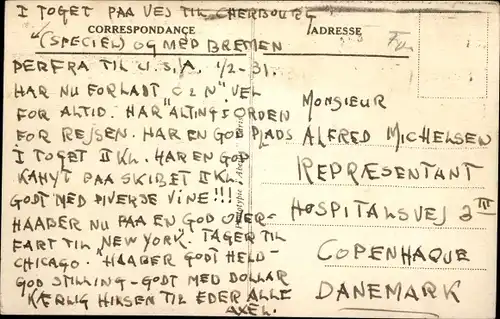 I TOGET PAA VEJ TIL CHERBOURG
CORRESPONDANCE
ADRESSE
(SPECIEL) OG MED BREMEN
DERFRA TIL U.S.A. 1/2-31.
HAR NU FORLADT VEL
FOR ALTID. HAR "ALTING I ORDEN
FOR REJSEN. HAR EN GOD PLADS
I TOGET II KL. HAR EN GOD
KAHYT PAA SKIBET II KL.
GODT MED DIVERSE VINE!!!
HAABER NU PAA EN GOD OVER-
FART TIL "NEW YORK". TAGER TIL
CHICAGO. HAABER GODT HELD-
GOD STILLING-GODT MED DOLLAR
KÆRLIG HILSEN TIL EDER ALLE
AXEL.
MONSIEUR
ALFRED MICHELSEN
REPRÆSENTANT
HOSPITALSVEJ 3 III
COPENHAQUE
DANEMARK